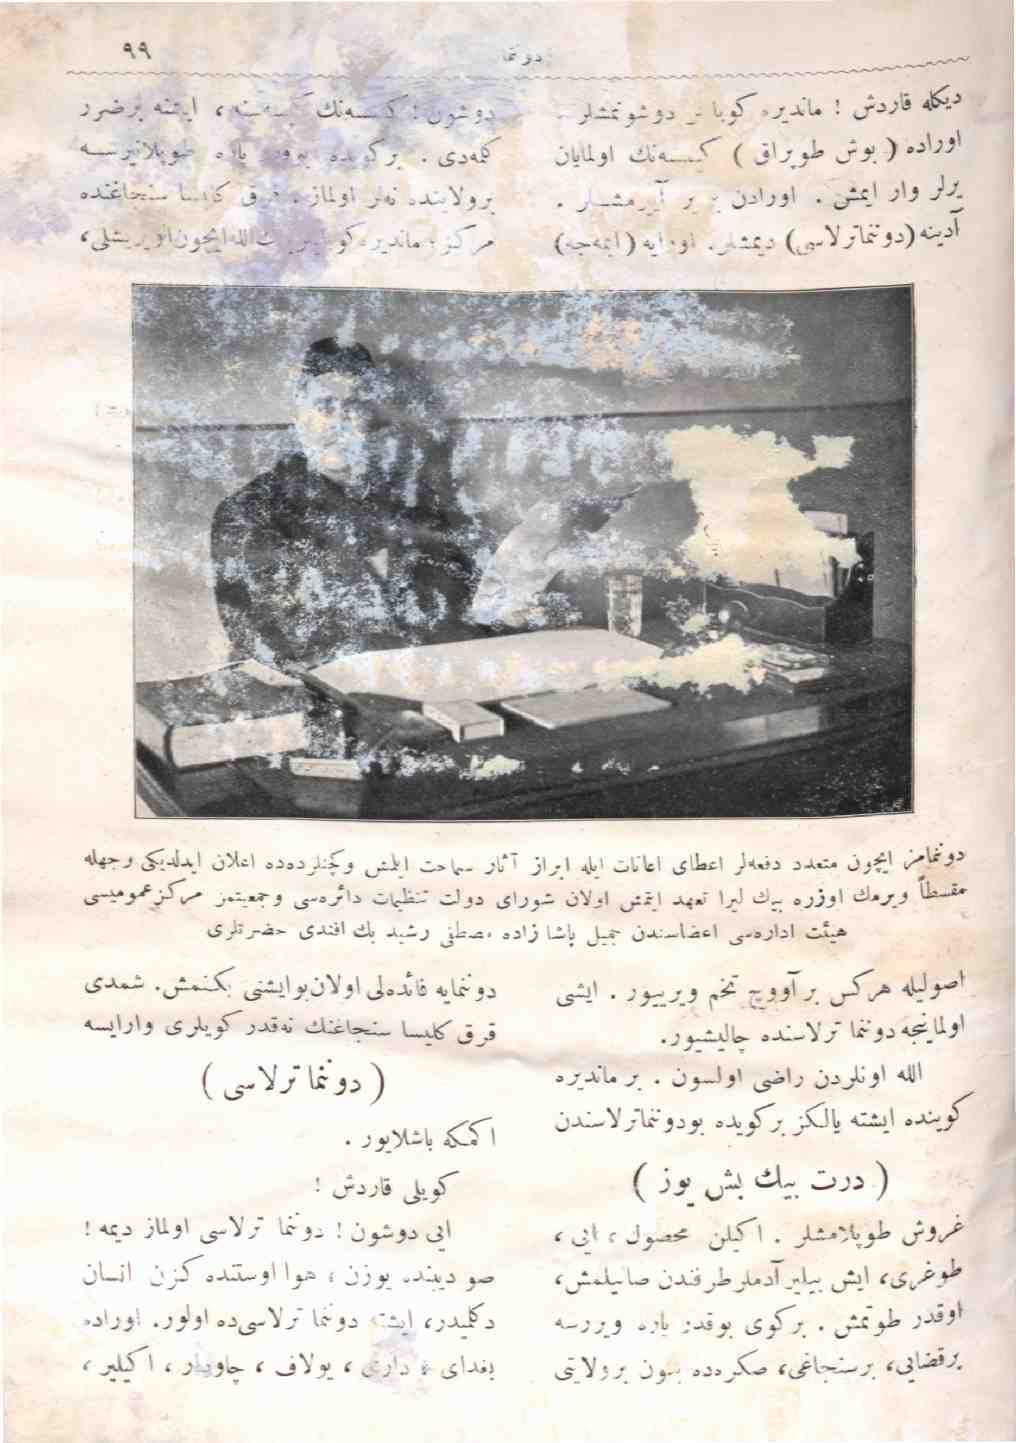 دوننما
٩٩
دیكله قاردش ! ماندیره كویا دوشونمشلر .
اوراده ( بوش طوپراق ) كیمسه‌نك اولمایان
یرلر وار ایمش . اورادن بر یر آییرمشلر .
آدینه (دوننما ترلاسی) دیمشلر. اورایه (ایمه‌جه)
دوشون ! كیسه‌نك كیسه‌سنه ، ایشنه بر ضرر
كلمه‌دی . بر كویده پاره طوپلانیرسه
بر ولایتده نه‌لر اولماز . قرق كلیسا سنجاغنده
مركز ؛ ماندیره الله ایچون
دوننمامز ایچون متعدد دفعه‌لر اعطای اعانات ایله ابراز آثار سماحت ایلمش وكچنلرده‌ده اعلان ایدلدیكی وجهله
مقسطاً ویرمك اوزره بیك لیرا تعهد ایتمش اولان شورای دولت تنظیمات دائره‌سی وجمعیتمز مركز عمومیسی
هیئت اداره‌سی اعضاسندن جمیل پاشا زاده مصطفی رشید بك افندی حضرتلری
اصولیله هركس بر آووچ تخم ویرییور . ایشی
اولماینجه دوننما ترلاسنده چالیشیور.
الله اونلردن راضی اولسون . بر ماندیره
كوینده ایشته یالكز بر كویده بو دوننما ترلاسندن
( درت بیك بش یوز )
غروش طوپلامشلر . اكیلن محصول ، ایی ،
طوغری، ایش بیلیر آدملر طرفندن صاتیلمش،
اوقدر طوتمش . بر كوی بوقدر پاره ویررسه
بر قضایی، بر سنجاغی، صكره‌ده بتون بر ولایتی
دوننمایه فائده‌لی اولان بو ایشنی بكنمش. شمدی
قرق كلیسا سنجاغنك نه‌قدر كویلری وارایسه
( دوننما ترلاسی )
اكمكه باشلایور .
كویلی قاردش !
ایی دوشون ! دوننما ترلاسی اولماز دیمه !
صو دیبنده یوزن ، هوا اوستنده كزن انسان
دكلمیدر، ایشته دوننما ترلاسی‌ده اولور. اوراده
بغدای ، داری ، یولاف ، چاودار ، اكیلیر ،